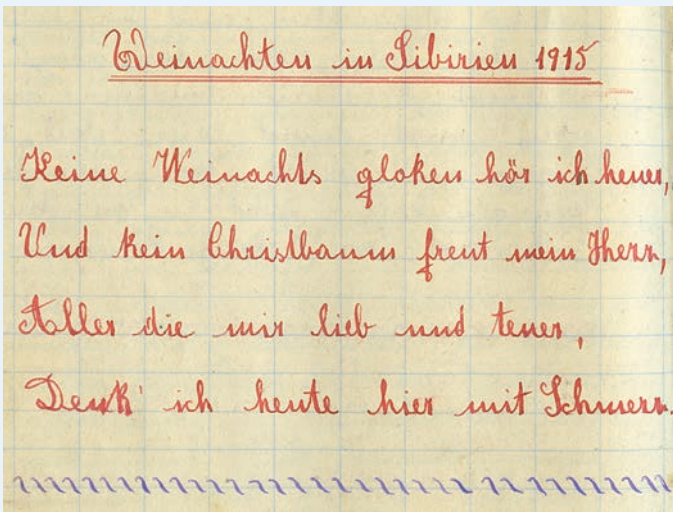 Weinachten in Sibirien 1915
Keine Weinachts gloken hör ich heuer,
Und kein Christbaum freut mein Herz,
Aller die mir lieb und teuer,
Denk' ich heute hier mit Schmerz.